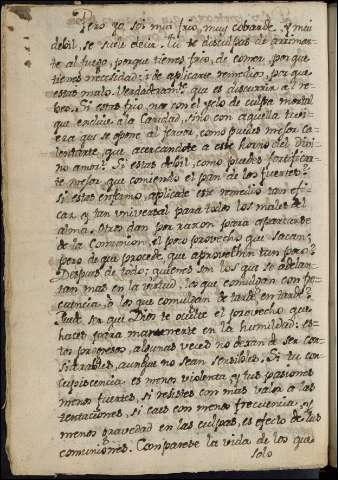 Pero yo soi mui frio, muy cobarde, y mui
debil, se suele decir. Tu te disculpas de arrimar-
te al fuego, porque tienes frio, de comer, porque
tienes necesidad; y de aplicarte remedios, porque
estas malo. Verdaderam.te que es discurrir al re-
bes. Si estas frio, no con el yelo de culpa mortal
que excluie a la Caridad, sino con aquella tivi-
eza que se opone al fervor, como puedes mejor ca-
lentarte, que acercandote a este horno del Divi-
no amor? Si estas debil, como puedes fortificar-
te mejor que comiendo el pan de los fuertes?
Si estas enfermo, aplicate este remedio tan efi-
caz, y tan universal para todos los males del
alma. Otros dan por razon para apartarse
de la Comunion, el poco provecho que sacan;
pero de que procede, que aprovechen tan poco?
Despues de todo; quienes son los que se adelan-
tan mas en la virtud, los que comulgan con fre-
cuencia, o los que comulgan de tarde en tarde?
Puede ser que Dios te oculte el provecho que
haces para mantenerte en la humildad; es-
tos progresos, algunas veces no dexan de ser con-
siderables, aunque no sean sensibles. Si tu con-
cupiscencia es menos violenta, y tus pasiones
menos fuertes, si resistes con mas valor a las
tentaciones, si caes con menos frecuencia, y
menos gravedad en las culpas, es efecto de las
comuniones. Comparese la vida de los que
solo